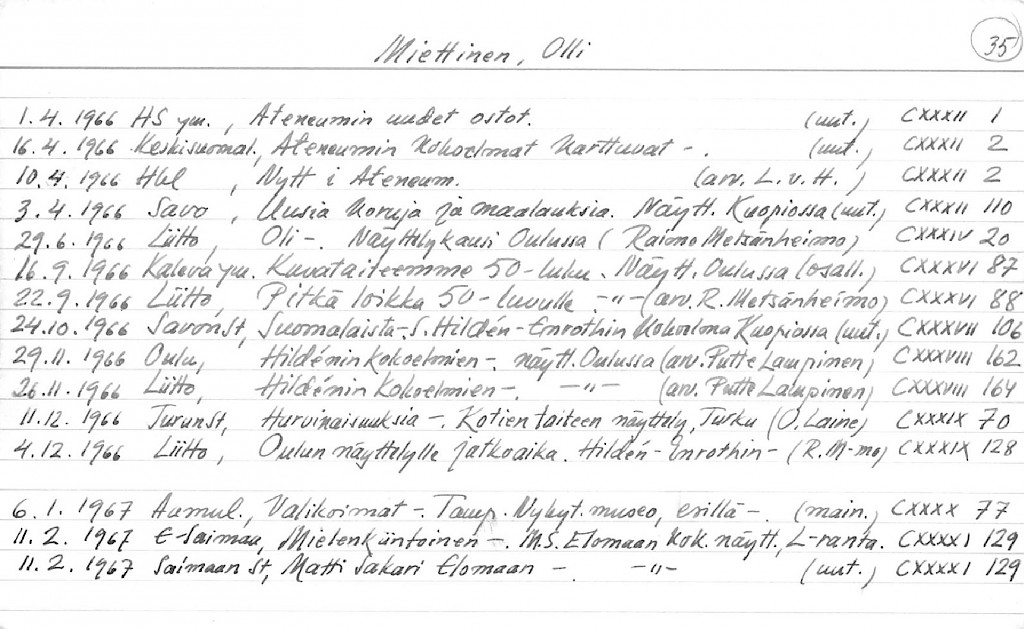 35
Miettinen, Olli
1.4.1966 HS ym., Ateneumin uudet ostot. (uut.) CXXXII 1
16.4.1966 Keskisuomal., Ateneumin kokoelmat karttuvat -. (uut.) CXXXII 2
10.4.1966 Hbl, Nytt i Ateneum. (arv. L.v.H.) CXXXII 2
3.4.1966 Savo, Uusia koruja ja maalauksia. Näytt. Kuopiossa (uut.) CXXXII 110
29.6.1966 Liitto, Oli -. Näyttelykausi Oulussa (Raimo Metsänheimo) CXXXIV 20
16.9.1966 Kaleva ym. Kuvataiteemme 50-luku. Näytt. Oulussa (osall.) CXXXVI 87
22.9.1966 Liitto, Pitkä loikka 50-luvulle -"- (arv. R. Metsänheimo) CXXXVI 88
24.10.1966 SavonSt, Suomalaista -. S. Hildén-Enrothin kokoelma Kuopiossa (uut.) CXXXVII 106
29.11.1966 Oulu, Hildénin kokoelmien -. näytt. Oulussa (arv. Putte Lampinen) CXXXVIII 162
26.11.1966 Liitto, Hildénin kokoelmien -. -"- (arv. Putte Lampinen) CXXXVIII 164
11.12.1966 TurunSt, Harvinaisuuksia -. Kotien taiteen näyttely, Turku (O. Laine) CXXXIX 70
4.12.1966 Liitto, Oulun näyttelylle jatkoaika. Hildén-Enrothin - (R. M-mo) CXXXIX 128
6.1.1967 Aamul., Valikoimat -. Tamp. Nykyt. museo, esillä -. (main.) CXXXX 77
11.2.1967 E-Saimaa, Mielenkiintoinen -. M.S. Elomaan kok. näytt., L-ranta. CXXXXI 129
11.2.1967 Saimaan St, Matti Sakari Elomaan - -"- (uut.) CXXXXI 129